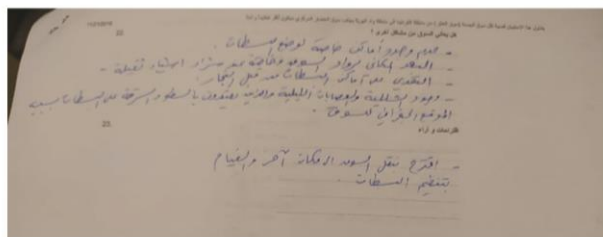 هل يعاني السوق من مشاكل اخرى ؟
22
- عدم وجود أماكن خاصة لوضع البسطات .
- البعد المكاني لرواد السوق وخاصة عند شراء اشياء ثقيلة -
- التعدي على أماكن البسطات من قبل التجار .
- وجود والعصابات الليلية والذين يقومون بالسطو السرقة على البسطات بسبب
الموقع الجغرافي للسوق .
23
اقتراحات و اراء
- اقترح بنقل السوق الى مكان آخر والقيام
بتنظيم البسطات